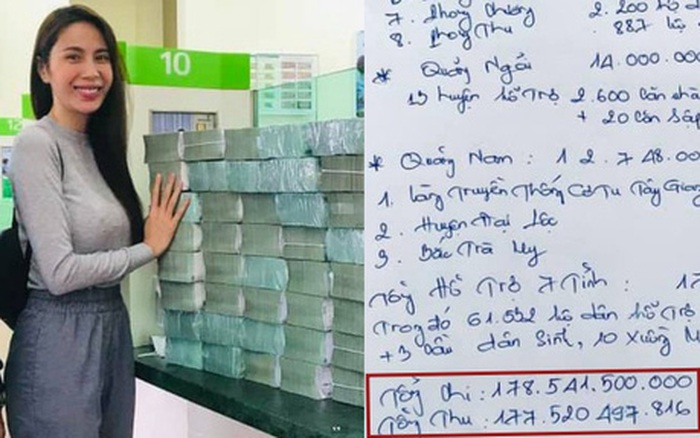 10
12
7. Phong Chương 2.200 hộ d
8. Phong Thu . 887 hộ
* Quảng Ngãi 14.000.00
13 huyện hỗ trợ 2.600 căn nhà
+ 20 căn sập
* Quảng Nam : 12.748.00
1. Làng Truyền Thống Cơ Tu Tây Giang
2. Huyện Đại Lộc
3. Bắc Trà My
Tổng Hỗ Trợ 7 Tỉnh : 17
Trong đó 61.532 hộ dân hỗ trợ
+ 3 Cầu dân sinh, 10 Xuồng M
Tổng chi : 178.541.500.000
Tổng Thu : 177.520.497.816